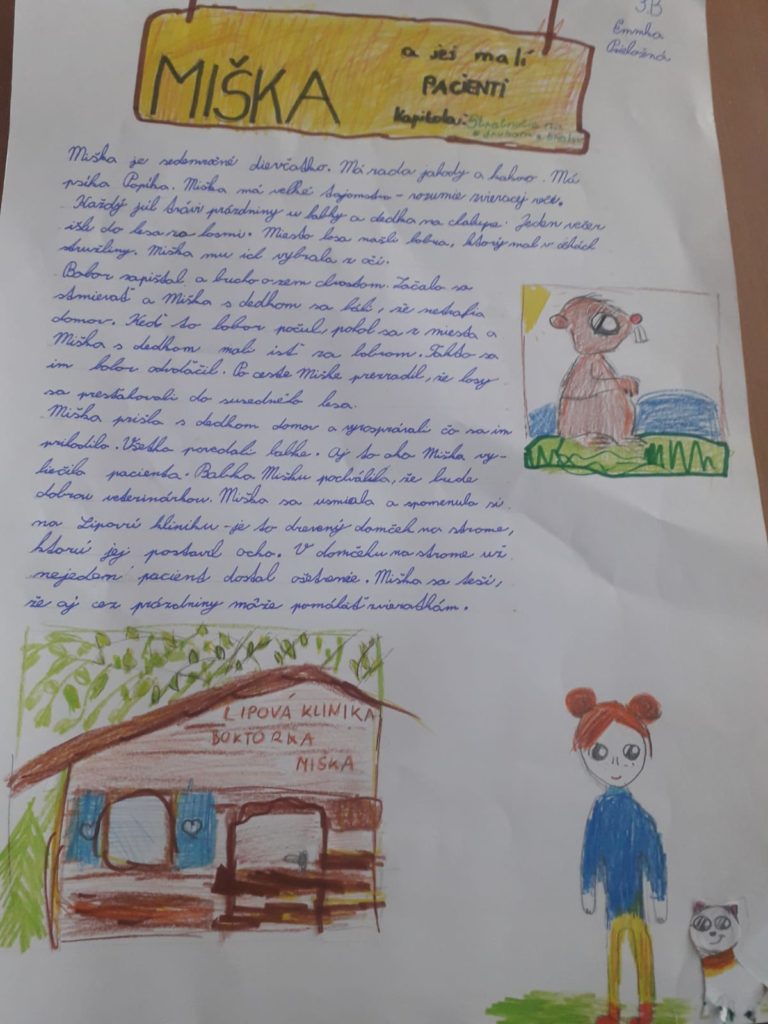 3B
Emmka
MIŠKA
a jej malí
PACIENTI
Kapitola:
Miška je sedemročné dievčatko. Má rada jahody a kakao. Má
psíka Popíka. Miška má veľké tajomstvo - rozumie zvieracej reči.
Každý júl trávi prázdniny u babky a dedka na chalupe. Jeden večer
išli do lesa za losmi. Miesto losa našli bobra, ktorý mal v očiach
stružliny. Miška mu ich vybrala z očí.
Bobor zapištal a buchol o zem chvostom. Začalo sa
stmievať a Miška s dedkom sa báli, že netrafia
domov. Keď to bobor počul, pohol sa z miesta a
Miška s dedkom mali ísť za bobrom. Takto sa
im bobor odvďačil. Po ceste Miške prezradil, že losy
sa presťahovali do susedného lesa.
Miška prišla s dedkom domov a vyrozprávali čo sa im
prihodilo. Všetko povedali babke. Aj to ako Miška vy-
liečila pacienta. Babka Mišku pochválila, že bude
dobrou veterinárkou. Miška sa usmiala a spomenula si
na Lipovú kliniku - je to drevený domček na strome,
ktorú jej postavil ocko. V domčeku na strome už
nejeden pacient dostal ošetrenie. Miška sa teší,
že aj cez prázdniny môže pomáhať zvieratkám.
LIPOVÁ KLINIKA
DOKTORKA
MIŠKA